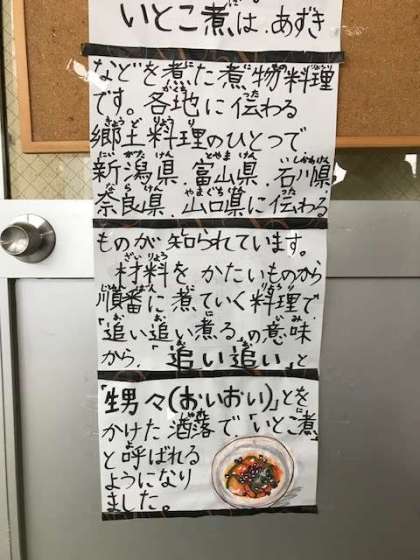 いとこ煮は、あずき
などを煮た煮物料理
です。各地に伝わる
郷土料理のひとつで
新潟県、富山県、石川県
奈良県、山口県に伝わる
ものが知られています。
材料をかたいものから
順番に煮ていく料理で
「追い追い煮る」の意味
から、「追い追い」と
「甥々(おいおい)」とを
かけた洒落で、「いとこ煮」
と呼ばれる
ようになり
ました。